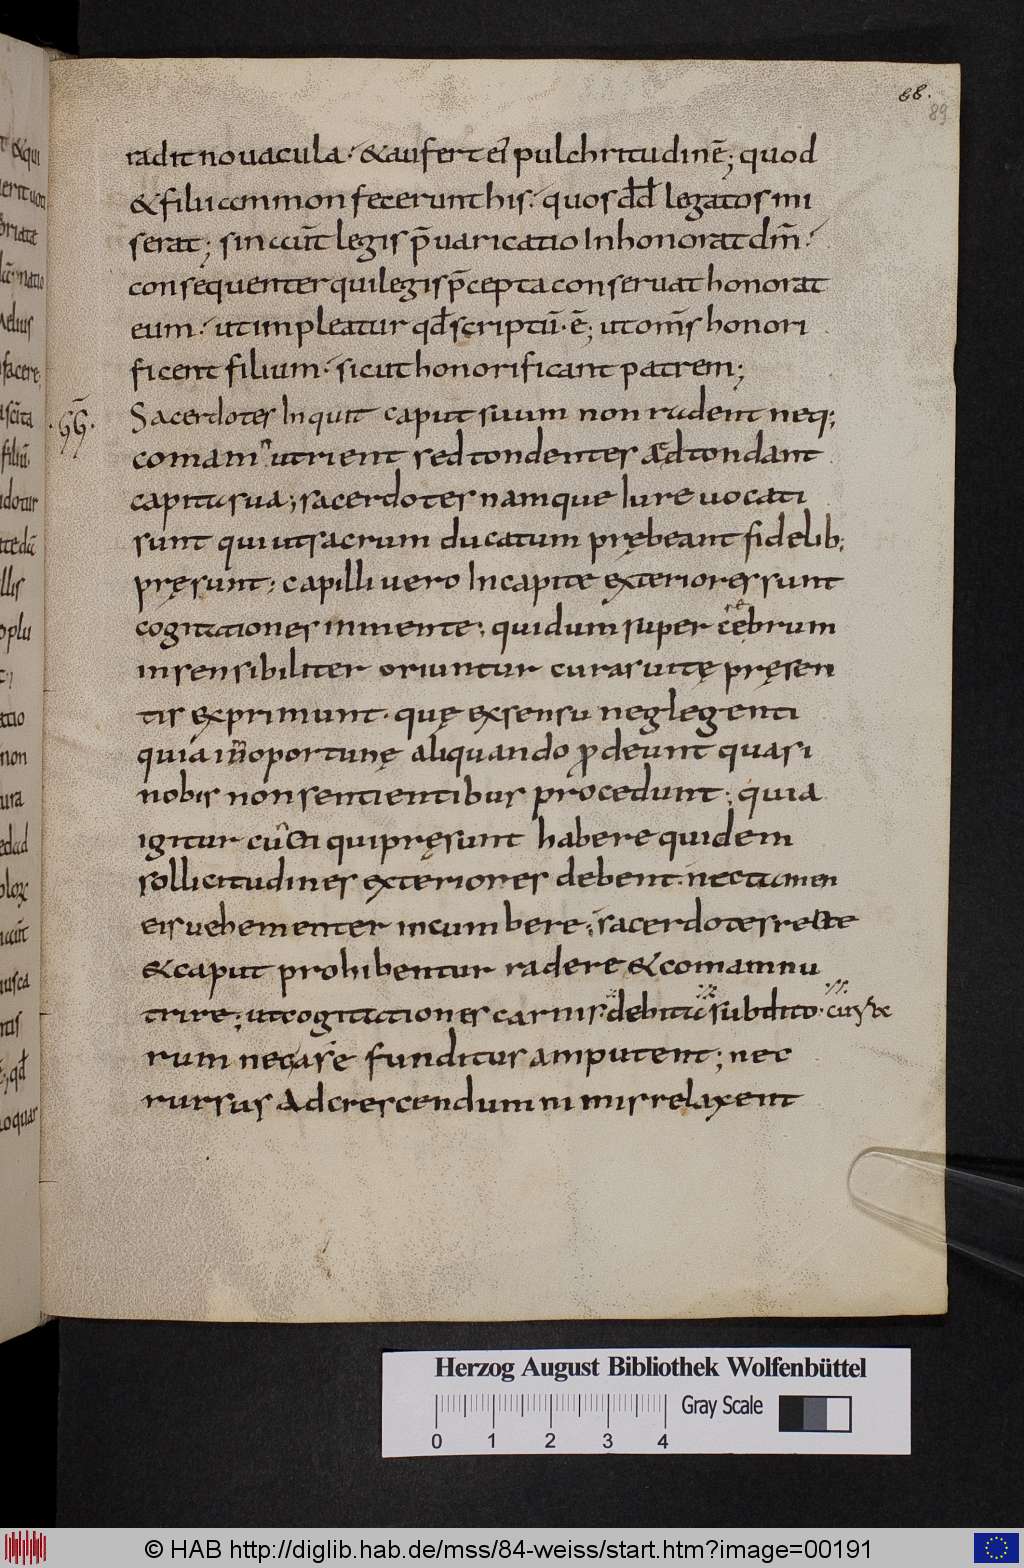 88.
89
radit nouacula · & aufert ei pulchritudinē; quod
& filii common fecerunt his · quos dđ legatos mi
serat; sin aut̄ legis p̄uaricatio Inhonorat dm̄ ·
consequenter qui legis p̄cepta conseruat honorat
eum · ut impleatur qđ scriptū · ē; ut om̄s honori
ficent filium · sicut honorificant patrem;
Sacerdotes Inquit caput suum non radent neq;
comam nutrient sed tondentes adtondant
capita sua; sacerdotes namque Iure uocati
sunt qui ut sacrum ducatum prębeant fidelib;
pręsunt; capilli uero In capite exteriores sunt
cogitationes in mente; qui dum super cerebrum
insensibiliter oriuntur curas uitę pręsen
tis exprimunt · quę ex sensu neglegenti
quia inoportunę aliquando ꝓdeunt quasi
nobis non sentientibus procedunt; quia
igitur cuncti qui pręsunt habere quidem
sollicitudines exteriores debent · nec tamen
eis uehementer incumbere; sacerdotes recte
& caput prohibentur radere & comam nu
trire; ut cogitationes carnis debita subdito
rum nec a se funditus amputent; nec
rursus ad crescendum nimis relaxent
Herzog August Bibliothek Wolfenbüttel
Gray Scale
0 1 2 3 4
© HAB http://diglib.hab.de/mss/84-weiss/start.htm?image=00191